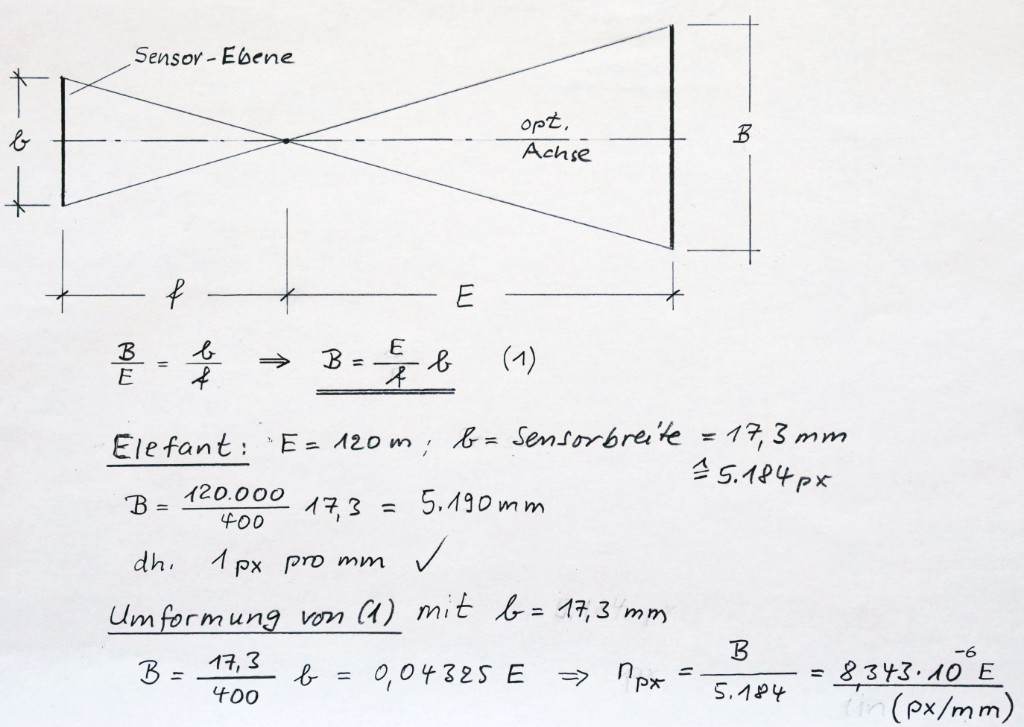 Sensor-Ebene
b
opt.
Achse
B
f
E
B/E = b/f ⇒ B = E/f b (1)
Elefant: E = 120 m; b = Sensorbreite = 17,3 mm
≙ 5.184 px
B = 120.000/400 17,3 = 5.190 mm
dh. 1 px pro mm ✓
Umformung von (1) mit b = 17,3 mm
B = 17,3/400 b = 0,04325 E ⇒ n_px = B/5.184 = 8,343·10^-6 E
(px/mm)